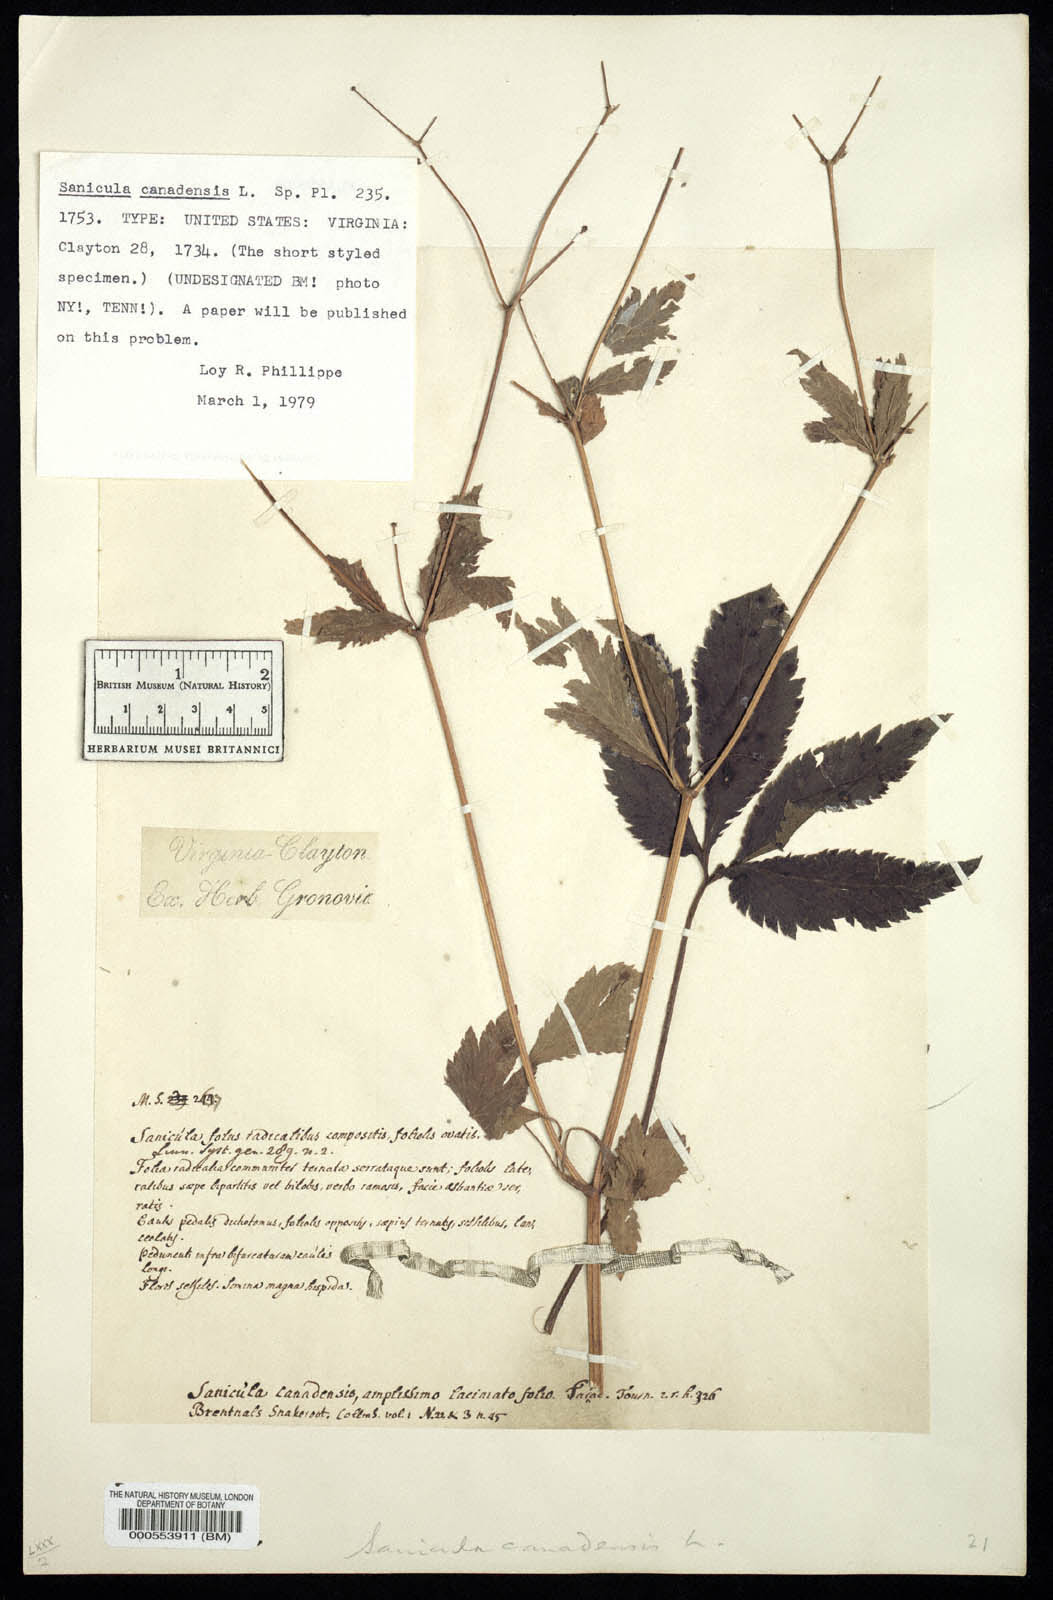 Sanicula canadensis L. Sp. Pl. 235.
1753. TYPE: UNITED STATES: VIRGINIA:
Clayton 28, 1734. (The short styled
specimen.) (UNDESIGNATED BM! photo
NY!, TENN!). A paper will be published
on this problem.
Loy R. Phillippe
March 1, 1979
1 2
BRITISH MUSEUM (NATURAL HISTORY)
1 2 3 4 5
HERBARIUM MUSEI BRITANNICI
Virginia-Clayton
Ex. Herb. Gronovic
M. S.
Sanicula foliis radicalibus compositis, foliolis ovatis.
Linn. Syst. gen. 289. n. 2.
Folia radicalia communiter ternata serrataque sunt; foliolis late,
ralibus sæpe bipartitis vel bilobis, verbo ramosis, facie Astrantiæ ser,
ratis.
Caulis pedalis dichotomus, foliolis oppositis, sæpius ternatis, sessilibus, lan,
ceolatis.
Pedunculi infra bifurcaturam caulis
longi.
Flores sessiles. Semina magna hispida.
Sanicula canadensis, amplissimo laciniato folio. Tourn. 2. r. h. 326
Brentnals Snakeroot, vol. 1 N. 22 & 3 n. 25
THE NATURAL HISTORY MUSEUM, LONDON
DEPARTMENT OF BOTANY
000553911 (BM)
LXXX
2
Sanicula canadensis L.
21